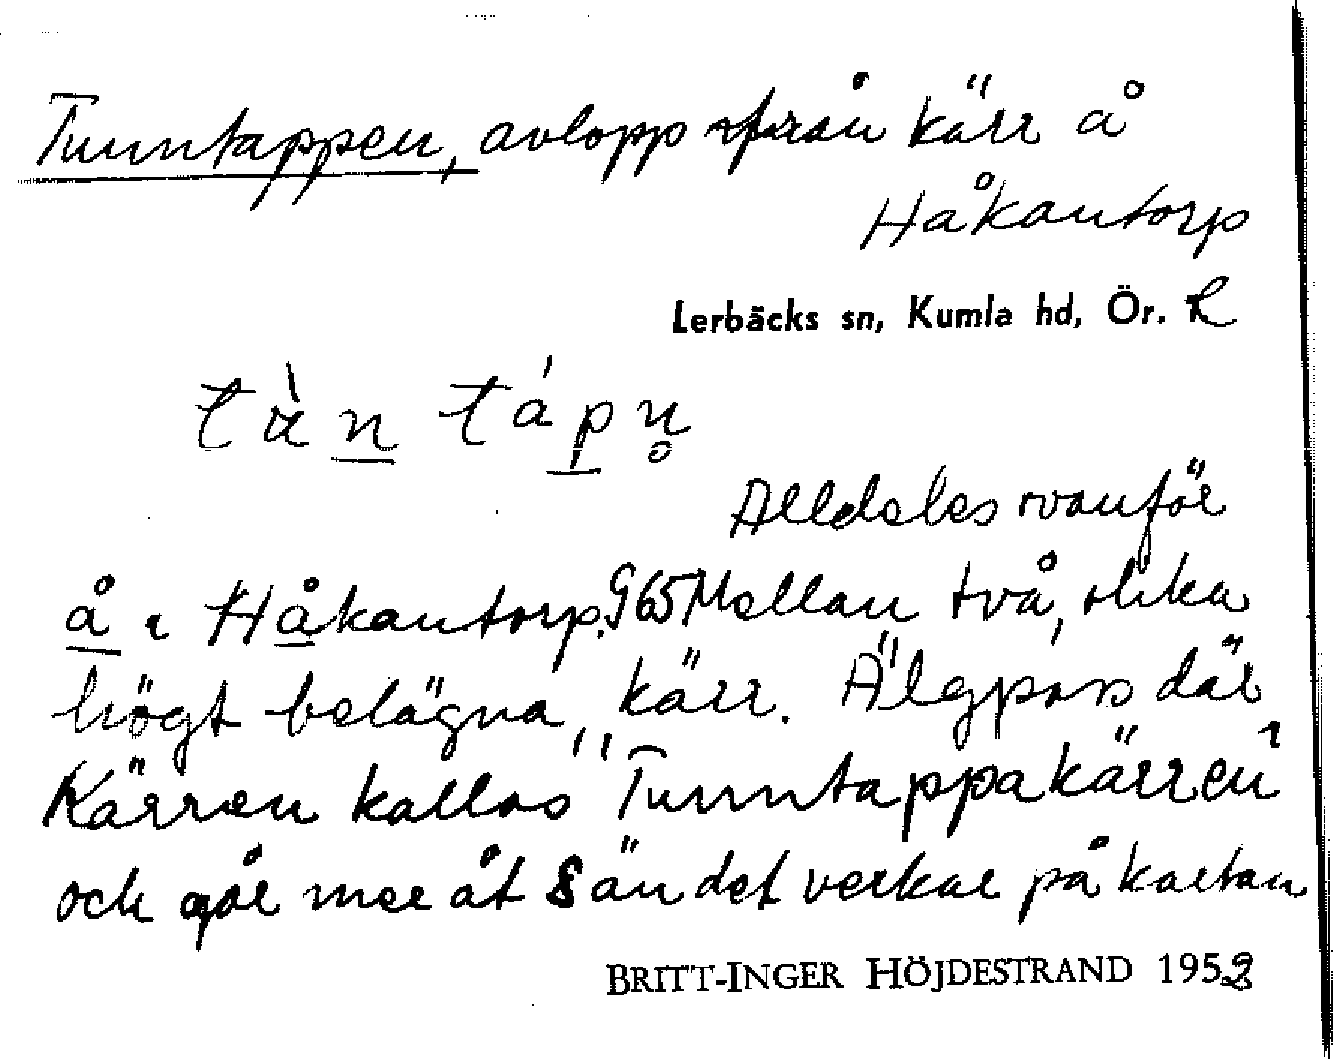 Tunntappen, avlopp från kärr å
Håkantorp
Lerbäcks sn, Kumla hd, Ör. R
tàn tápn̥
Alldeles ovanför
å i Håkantorp. 965 Mellan två, olika
högt belägna, kärr. Älgpass där
Kärren kallas "Tunntappakärren"
och går mer åt S än det verkar på kartan
BRITT-INGER HÖJDESTRAND 1952